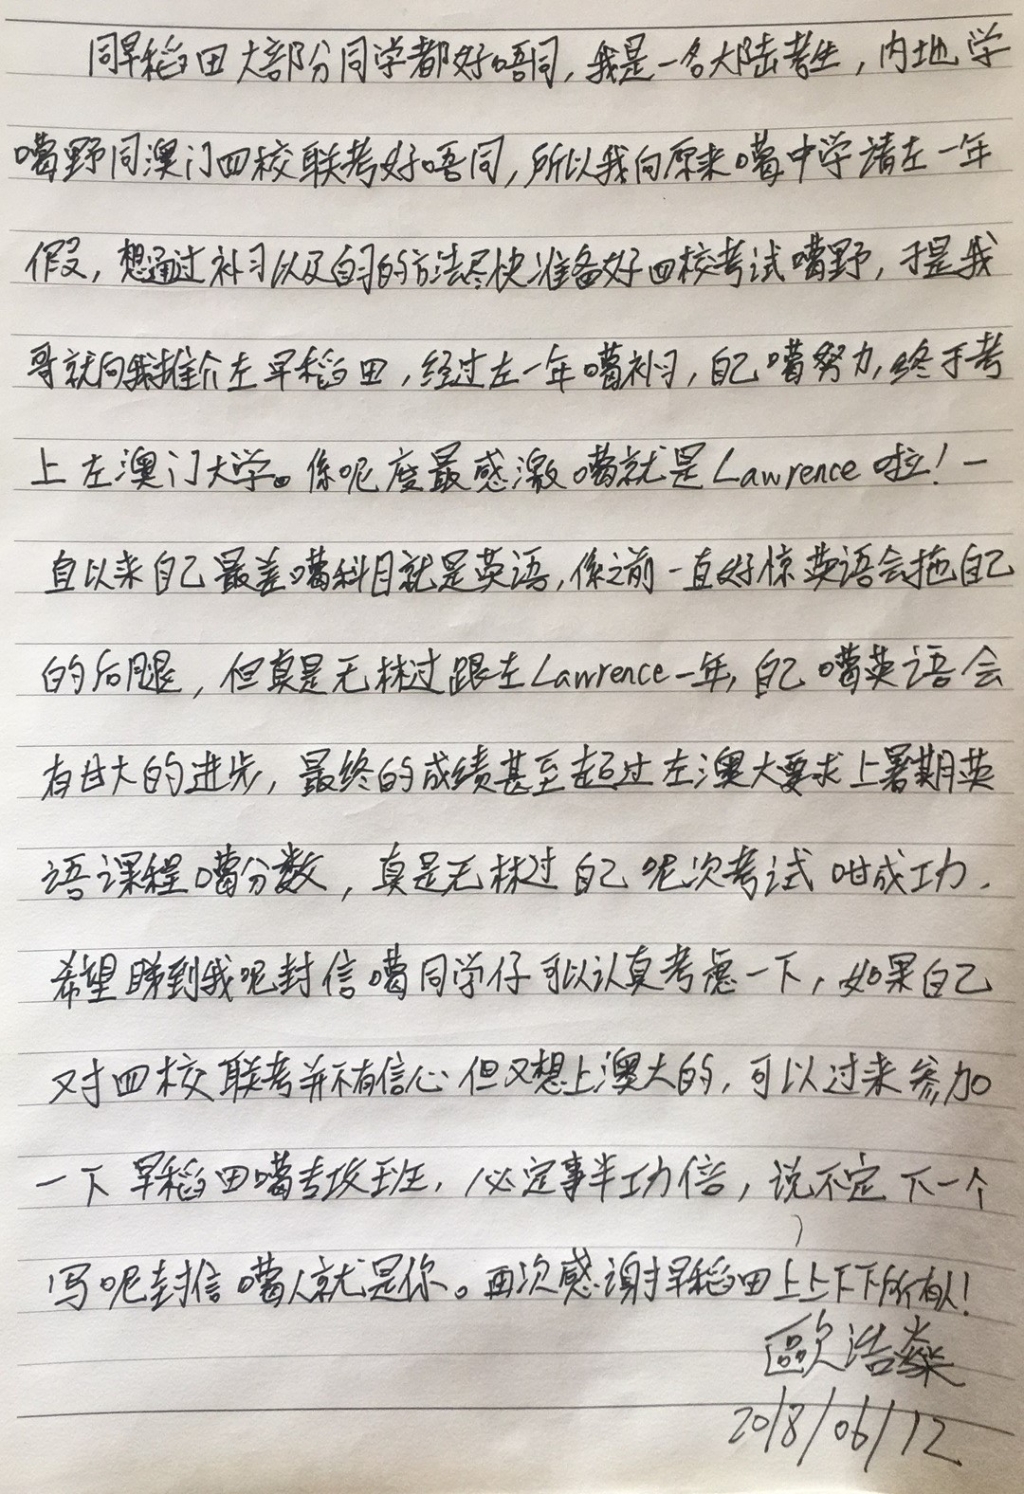 同早稻田大部分同学都好唔同，我是一名大陆考生，内地学
嘅野同澳门四校联考好唔同，所以我向原来嘅中学请左一年
假，想通过补习以及自习的方法尽快准备好四校考试嘅野，于是我
哥就向我推介左早稻田，经过左一年嘅补习，自己嘅努力，终于考
上左澳门大学。係呢度最感激嘅就是Lawrence啦！一
直以来自己最差嘅科目就是英语，係之前一直好惊英语会拖自己
的后腿，但真是无棶过跟左Lawrence一年，自己嘅英语会
有甘大的进步，最终的成绩甚至超过左澳大要求上暑期英
语课程嘅分数，真是无棶过自己呢次考试咁成功．
希望睇到我呢封信嘅同学仔可以认真考虑一下，如果自己
对四校联考并不有信心但又想上澳大的，可以过来参加
一下早稻田嘅专攻班，必定事半功倍，说不定下一个
写呢封信嘅人就是你。再次感谢早稻田上上下下所有人！
區欠浩燊
2018/06/12